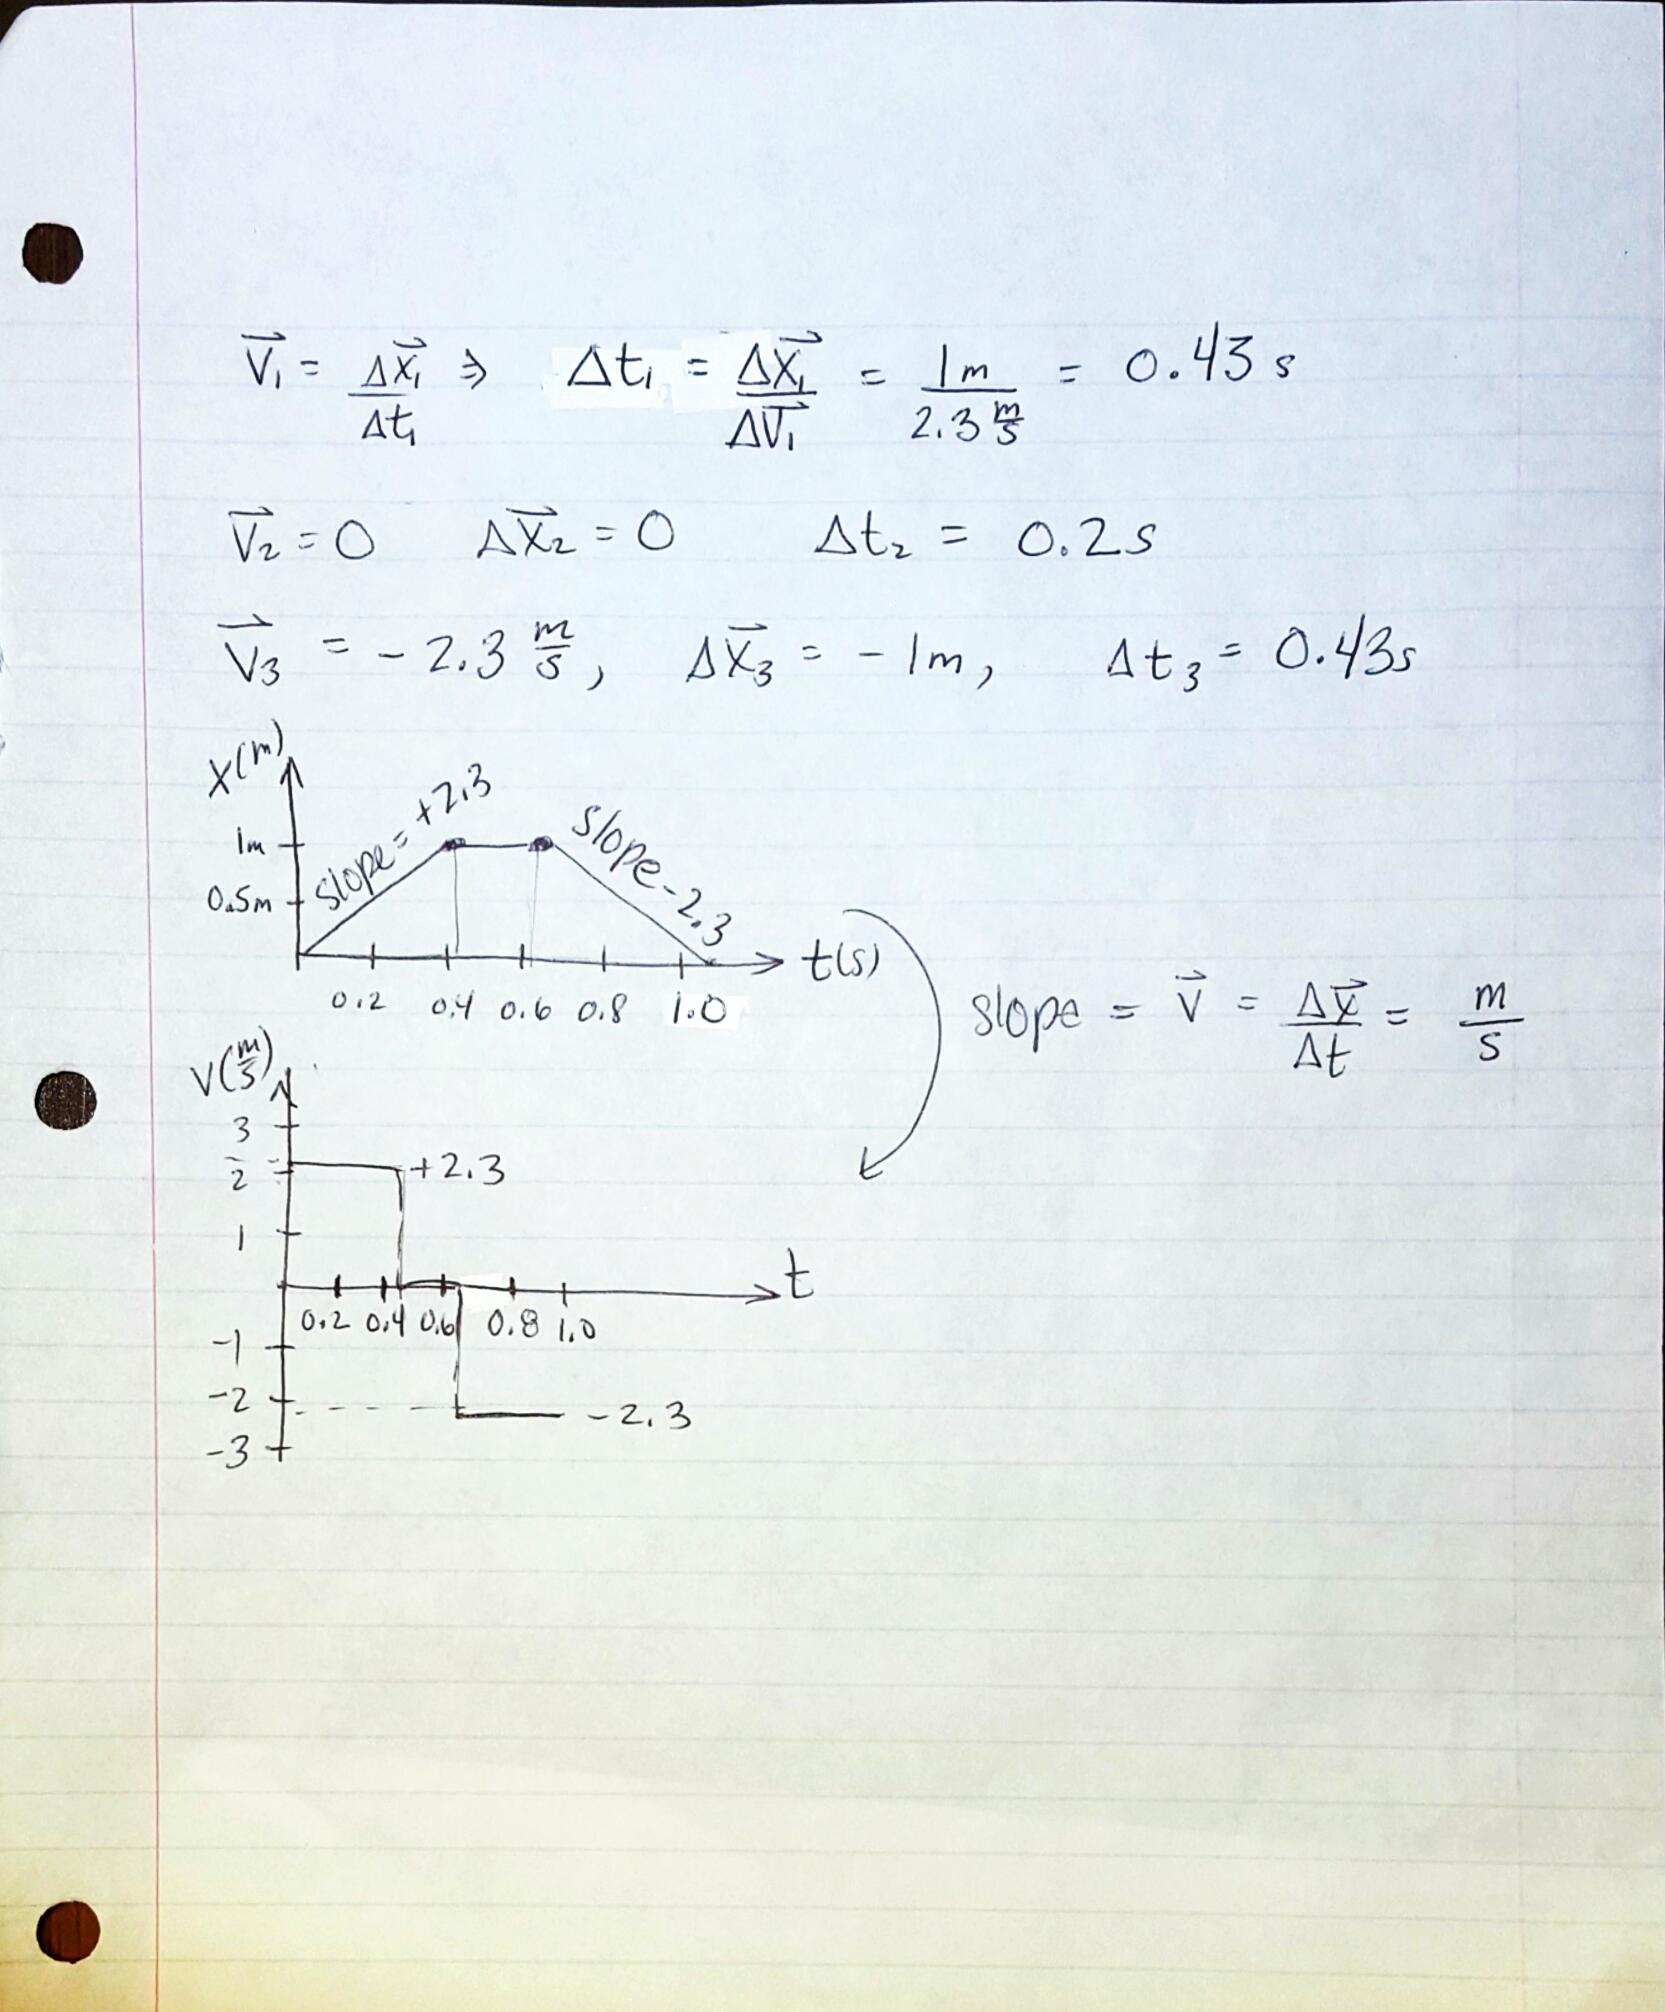 V⃗₁ = Δx⃗₁/Δt₁ ⇒ Δt₁ = Δx⃗₁/ΔV⃗₁ = 1m/2.3 m/s = 0.43 s
V⃗₂ = 0 Δx⃗₂ = 0 Δt₂ = 0.2s
V⃗₃ = -2.3 m/s, Δx⃗₃ = -1m, Δt₃ = 0.43s
x(m)
slope = +2.3
slope -2.3
1m
0.5m
t(s)
0.2 0.4 0.6 0.8 1.0
slope = v⃗ = Δx⃗/Δt = m/s
V(m/s)
3
2
+2.3
1
t
0.2 0.4 0.6 0.8 1.0
-1
-2
-2.3
-3